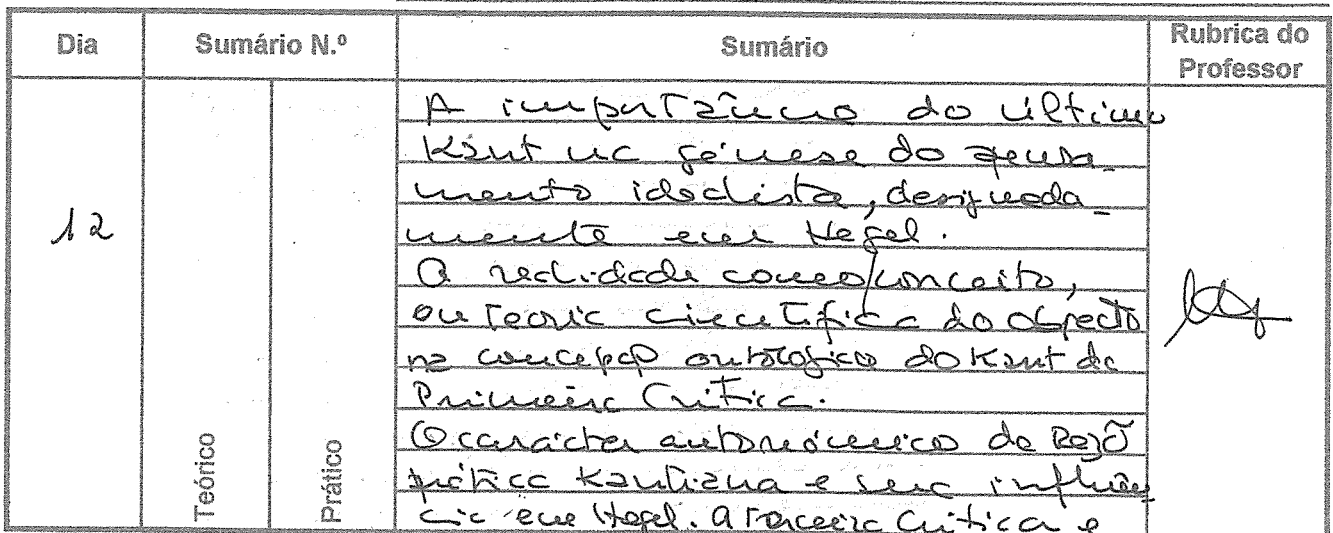 Dia Sumário N.º Sumário Rubrica do Professor
A importância do último
Kant na génese do pensa-
mento idealista, designada-
mente em Hegel.
A realidade como conceito,
ou teoria científica do objecto
na concepção ontológica do Kant da
Primeira Crítica.
O carácter autonómico da Razão
prática kantiana e sua influên
cia em Hegel. A Terceira Crítica e
12
Teórico
Prático